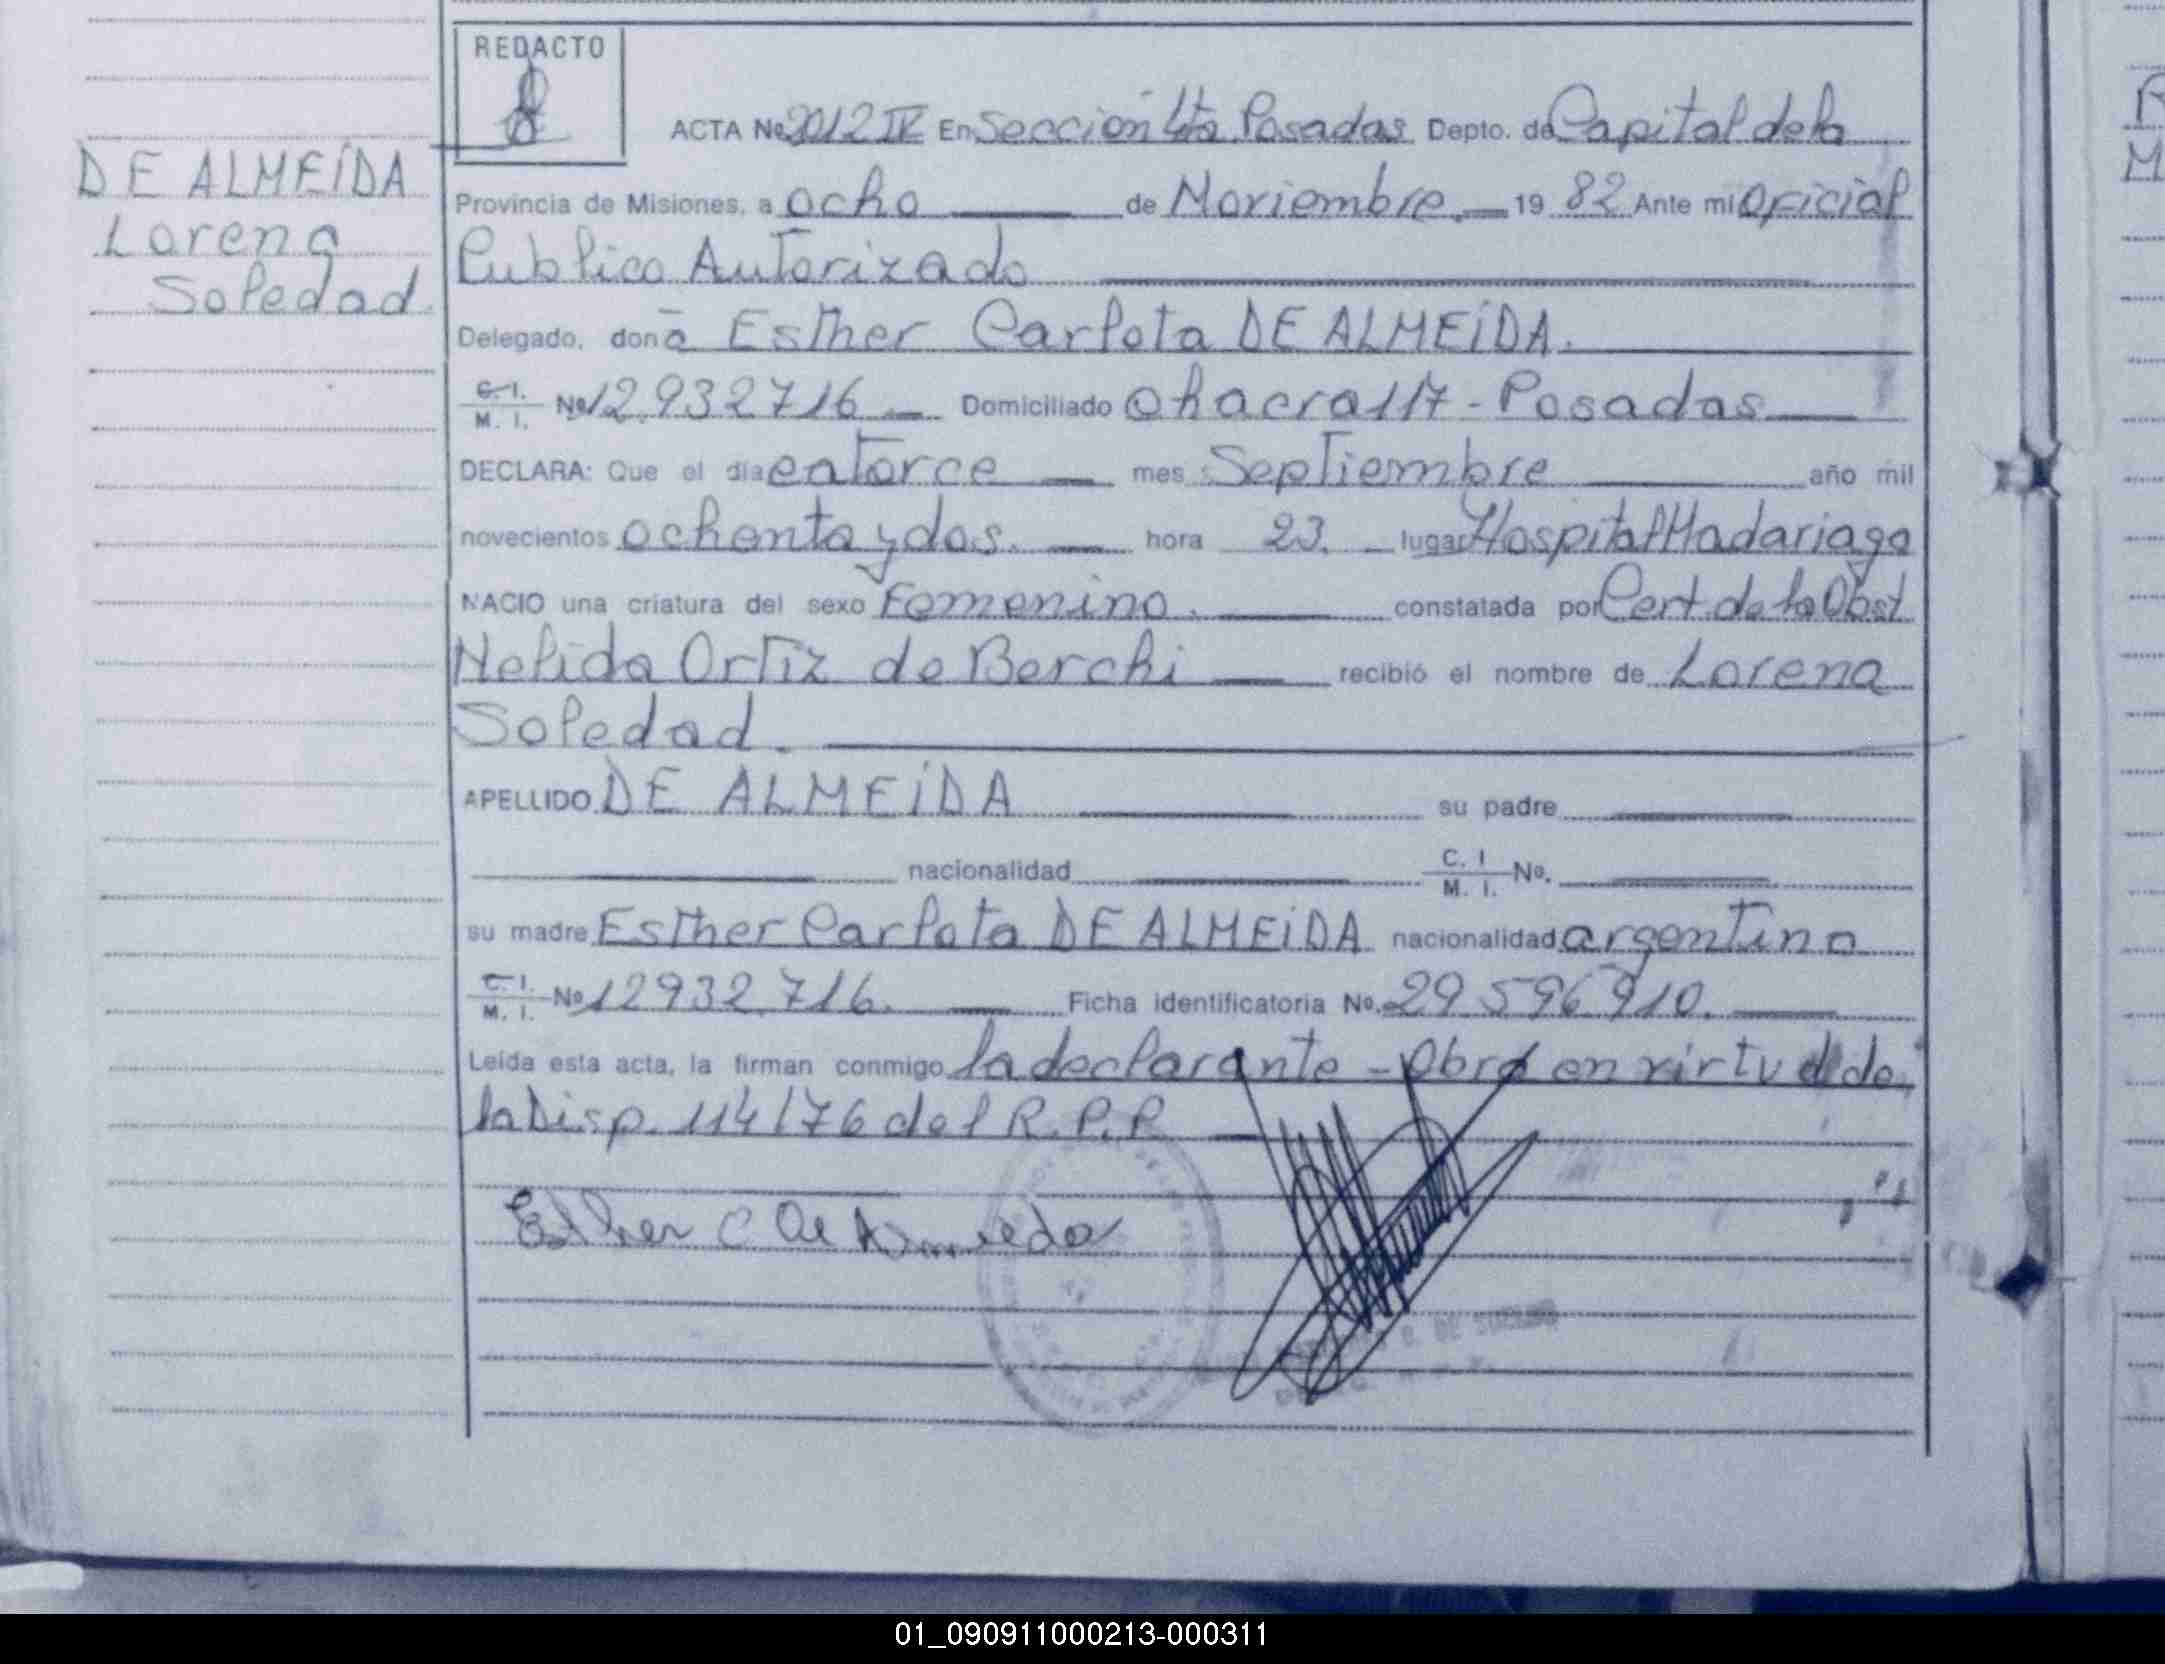 REDACTO
ACTA No. 2012 IV En Sección 4ta Posadas Depto. de Capital de la
DE ALMEÍDA
Lorena
Soledad.
Provincia de Misiones, a ocho de Noviembre. 19 82 Ante mi Oficial
Publico Autorizado
Delegado, don a Esther Carlota DE ALMEÍDA.
C. I. M. I. No 12.932716 Domiciliado Chacra 117 - Posadas
DECLARA: Que el día catorce mes Septiembre año mil
novecientos ochenta y dos. hora 23. lugar Hospital Madariaga
NACIO una criatura del sexo Femenino. constatada por Cert. de la Obst.
Nelida Ortiz de Berchi recibió el nombre de Lorena
Soledad.
APELLIDO DE ALMEÍDA su padre
nacionalidad C. I M. I. No.
su madre Esther Carlota DE ALMEÍDA nacionalidad argentina
C. I. M. I. No 12932.716. Ficha identificatoria No. 29.596.910.
Leída esta acta, la firman conmigo la declarante - Obra en virtud de
la Disp. 114/76 del R.P.P.
Esther C De Almeida
DE
01_090911000213-000311